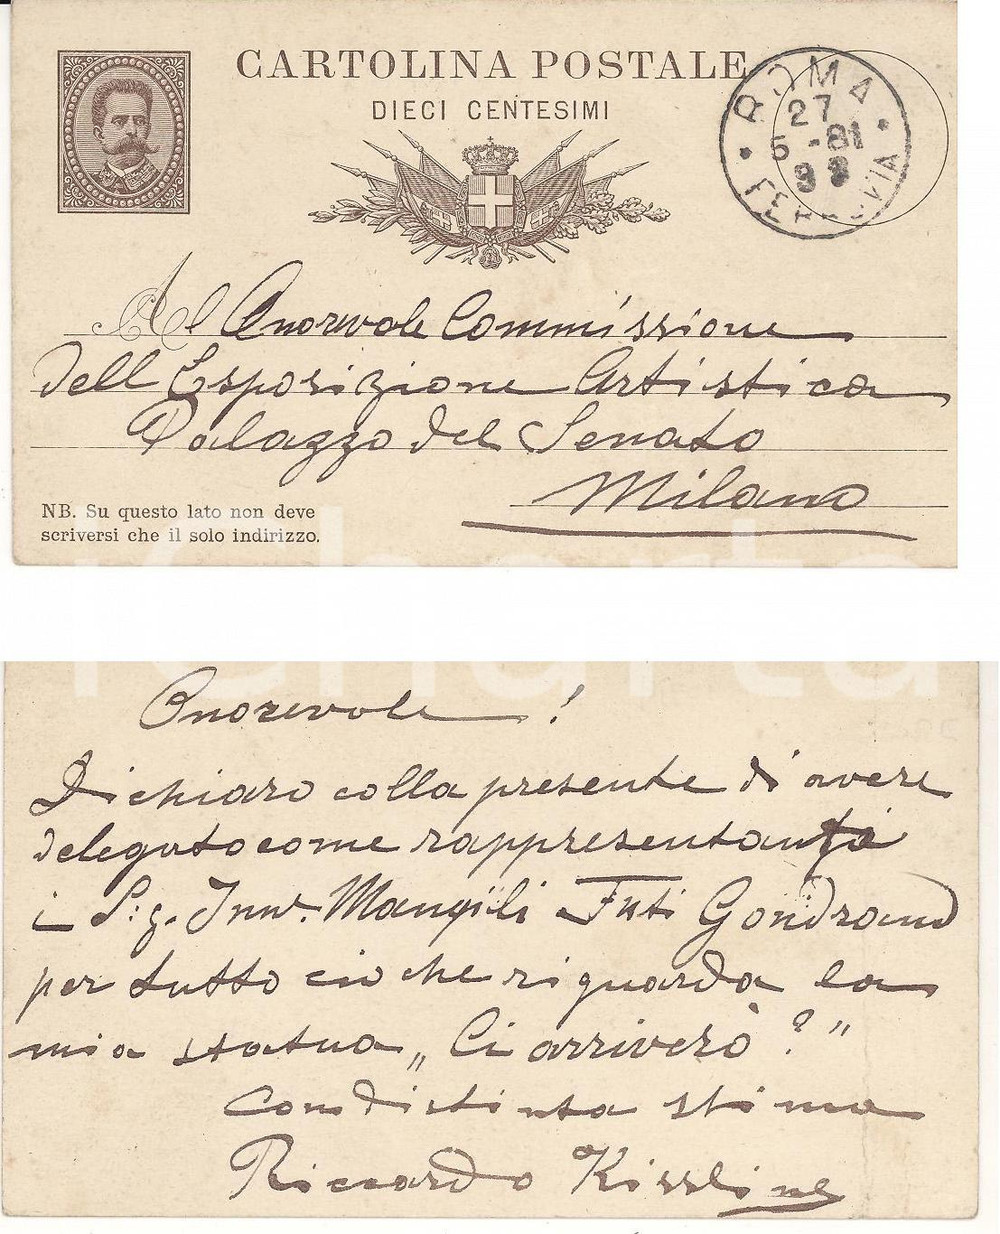 CARTOLINA POSTALE
DIECI CENTESIMI
ROMA
27
5 - 81
FERROVIA
All Onorevole Commissione
dell Esposizione Artistica
Palazzo del Senato
Milano
NB. Su questo lato non deve
scriversi che il solo indirizzo.
Onorevole!
Dichiaro colla presente di avere
delegato come rappresentante
i Sig. Inn. Mangili Fˡˡⁱ Gondrand
per tutto ciò che riguarda la
mia statua „Ci arriverò?"
Con distinta stima
Riccardo Kissling